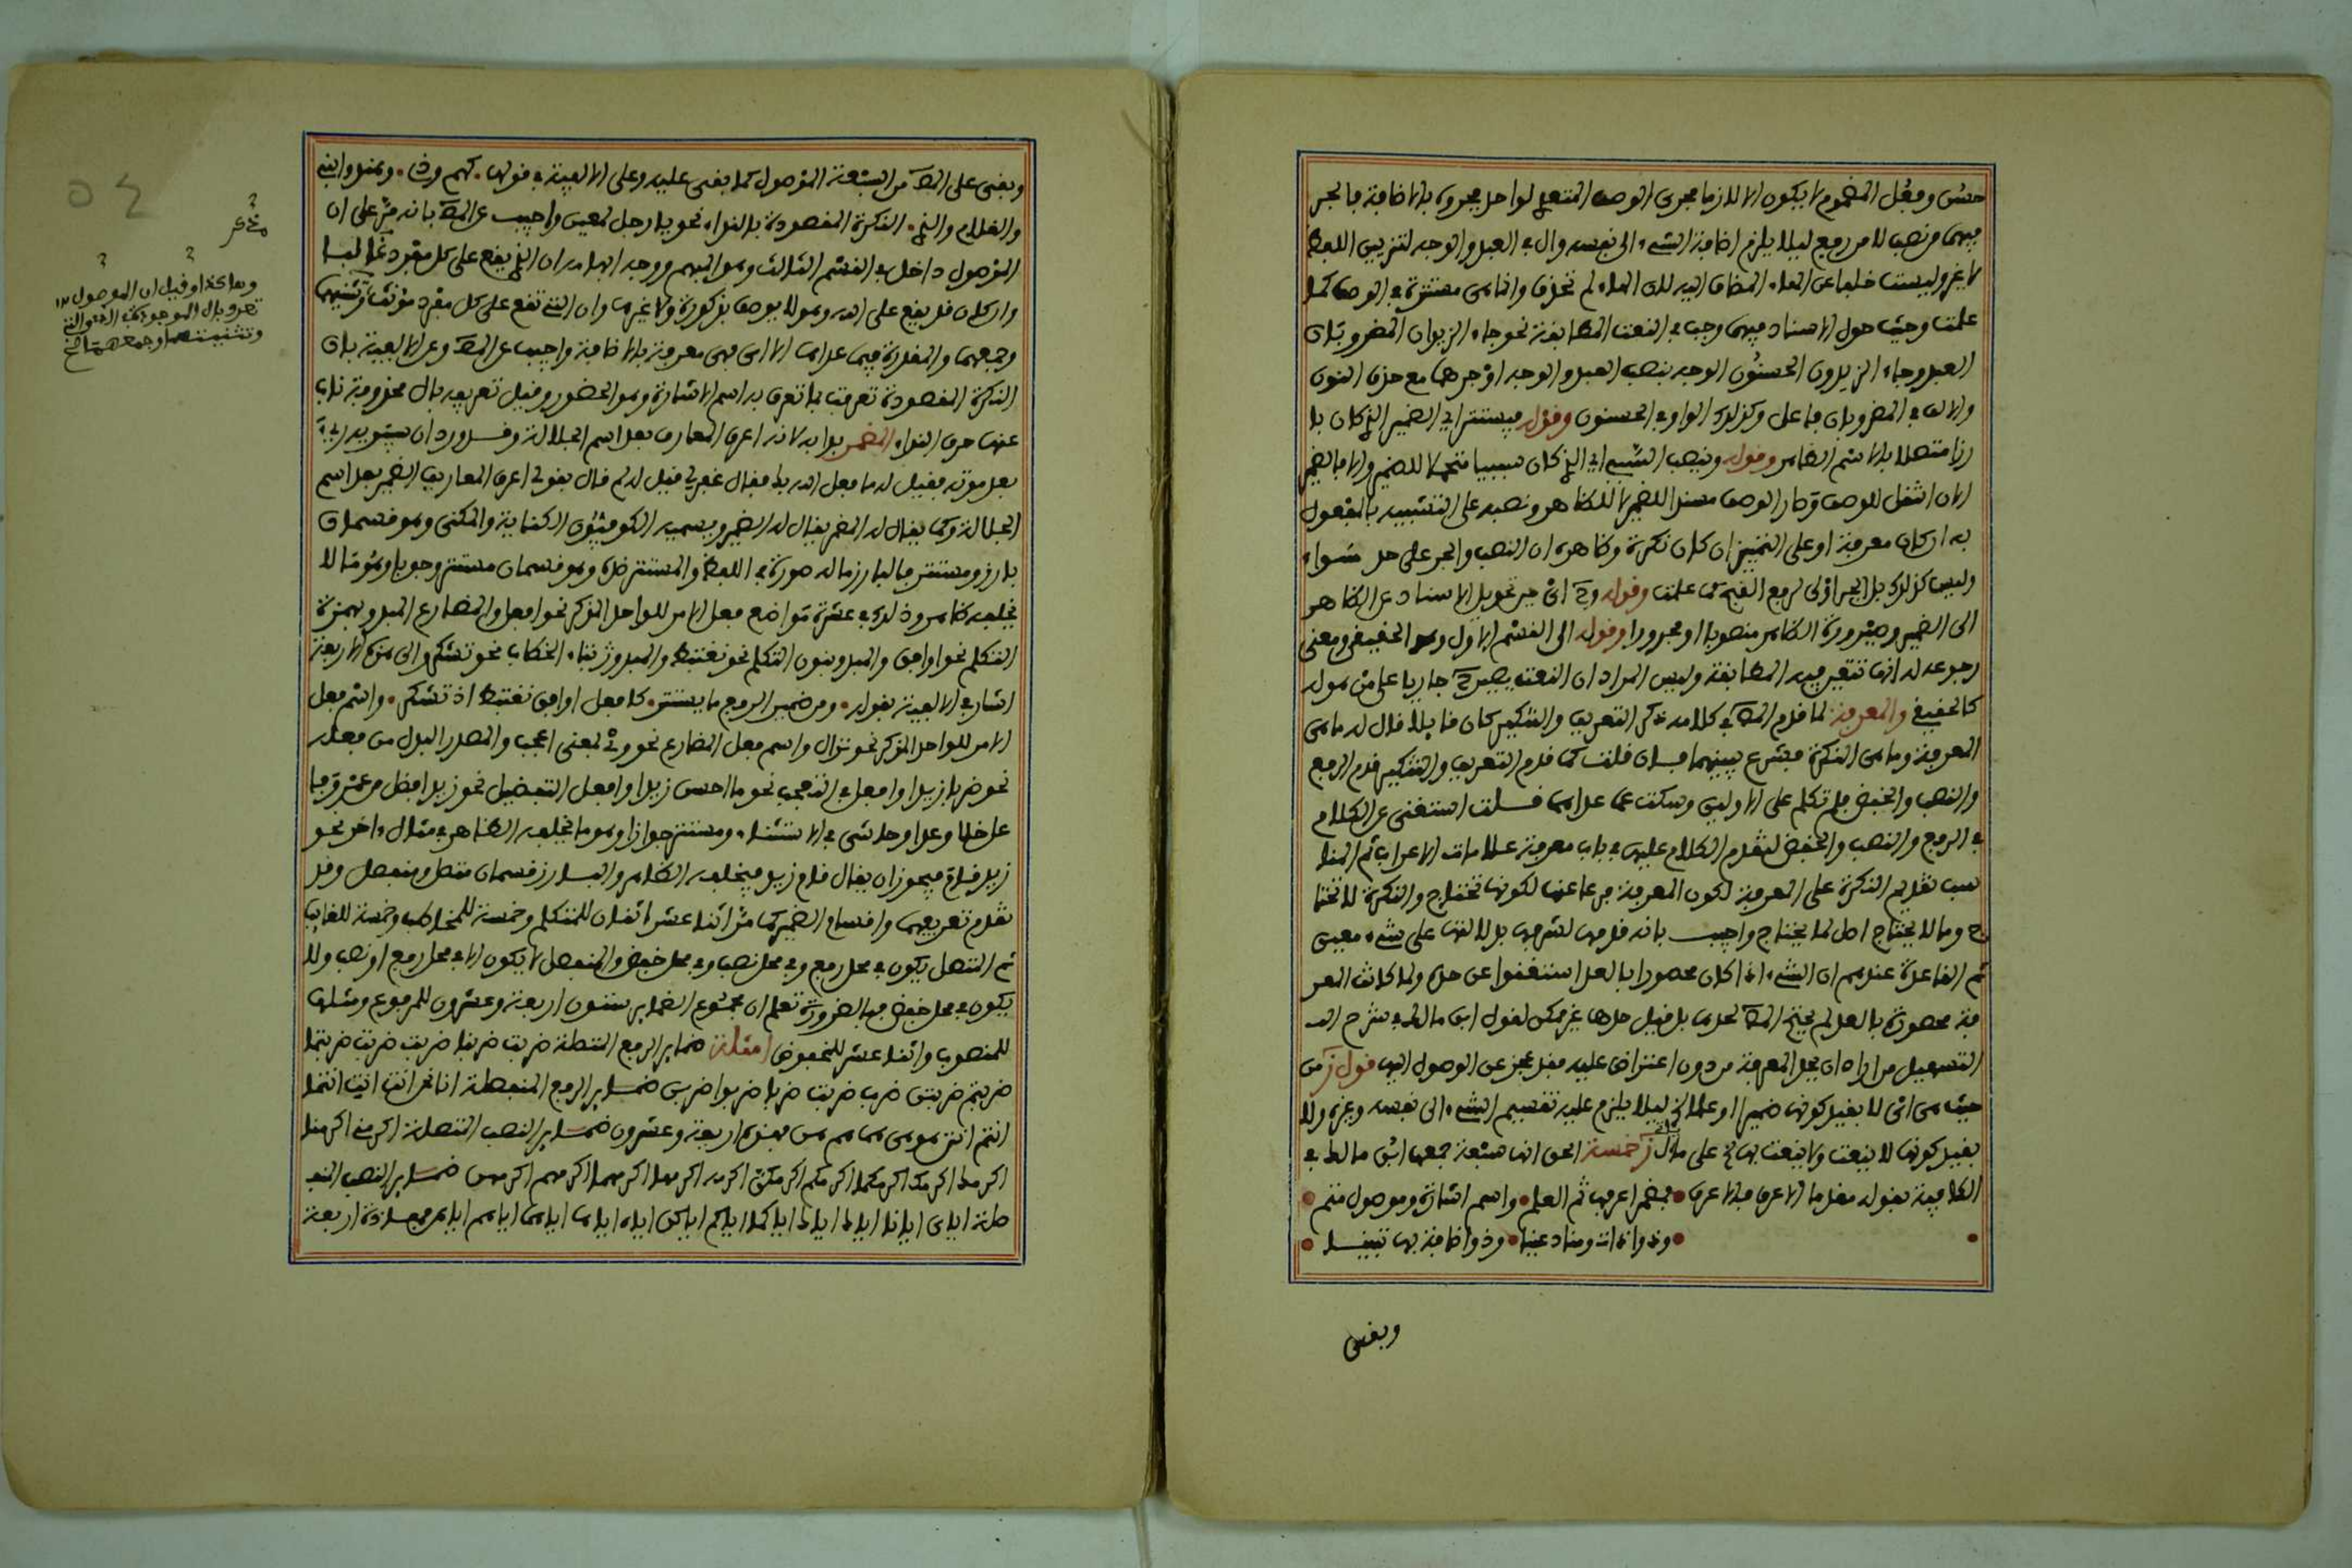 حسن وفعل المضموم لا يكون الا لازما مجرى الوصف المتعدي لواحد مجروه بالاضافة فالجر
فيهما من نصب لا من رفع ليلا يلزم اضافة الشيء الى نفسه وال في العبد والوجه لتزيين اللفظ
لا غير وليست خلفا عن الهاء المضاف اليه لان الهاء لم تحذف وانما هي مستترة في الوصف كما
علمت وحيث حول الاسناد فيهما وجب في النعت المطابقة نحو جاء الزيدان المضروبان
العبد وجاء الزيدون الحسنون الوجه بنصب العبد والوجه او جرهما مع حذف النون
والالف في المضروبان فاعل وكذلك الواو في الحسنون وقوله فيستتر اي الضمير الذي كان با
رزا متصلا بالاسم الظاهر وقوله وينصب السببي اي الذي كان سببيا متحملا للضمير والا فالضمير
الان انتقل للوصف وصار الوصف مسندا للضمير لا للظاهر ونصبه على التشبيه بالمفعول
به ان كان معرفة او على التمييز ان كان نكرة وظاهره ان النصب والجر على حد سواء
وليس كذلك بل الجر اولى لرفع القبح كما علمت وقوله وح اي حين تحويل الاسناد عن الظاهر
الى الضمير وصيرورة الظاهر منصوبا او مجرورا وقوله الى القسم الاول وهو الحقيقي ومعنى
رجوعه له انها تتعين فيه المطابقة وليس المراد ان النعت يصير ح جاريا على من هو له
كالحقيقي والمعرفة لما قدم المص في كلامه ذكر التعريف والتنكير كان قايلا قال له ما هي
المعرفة وما هي النكرة فشرع يبينهما فان قلت كما قدم التعريف والتنكير قدم الرفع
والنصب والخفض فلم تكلم على الاولين وسكت عما عداهما قلت استغنى عن الكلام
في الرفع والنصب والخفض لتقدم الكلام عليها في باب معرفة علامات الاعراب ثم المنا
سب تقديم النكرة على المعرفة لكون المعرفة فرعا عنها لكونها تحتاج والنكرة لا تحتا
ج وما لا يحتاج اصل لما يحتاج واجيب بانه قدمها لشرفها بدلالتها على شيء معين
ثم القاعدة عندهم ان الشيء اذا كان محصورا بالعد استغنوا عن حده ولما كانت المعر
فة محصورة بالعد لم يحتج المص لحدها بل قيل حدها غير ممكن لقول ابن مالك في شرح
التسهيل من اراد ان يحد المعرفة من دون اعتراض عليه فقد عجز عن الوصول اليها قول ز من
حيث هي اي لا بقيد كونها ضميرا او علما الخ ليلا يلزم عليه تقسيم الشيء الى نفسه وغيره ولا
بقيد كونها لا ينعت ولا ينعت بها خ على ما قال ز خمسة الحق انها سبعة جمعها ابن مالك في
الكافية بقوله فقد ما الاعرف فالاعرف • فمضمر اعرفها ثم العلم • واسم اشارة وموصول متم •
• وذو اداة ومناد عينا • وذو اضافة بها تبينا •
وبقى
وبقى على المص من السبعة الموصول كما بقى عليه وعلى الالفية في قولها • كهم وذي • وهند وابني
والغلام والذي • النكرة المقصودة بالنداء نحو يا رجل لمعين واجيب عن المص بانه مر على ان
الموصول داخل في القسم الثالث وهو المبهم ووجه ابهامه ان الذي يقع على كل مفرد غالبا
وان كان قد يقع على الله وهو لا يوصف بذكورة ولا غيرها وان التي تقع على كل مفرد مؤنث وتثنيتهما
وجمعهما والمقدرة فيما عداها الا اى فهى معرفة بالاضافة واجيب عن المص وعن الالفية بان
النكرة المقصودة تعرفت بما تعرف به اسم الاشارة وهو الحضور وقيل تعريفه بال محذوفة ناب
عنها حرف النداء المضمر بدا به لانه اعرف المعارف بعد اسم الجلالة وقد ورد ان سيبويه
بعد موته فقيل له ما فعل الله بك فقال غفر لي قيل له لم قال بقولي اعرف المعارف الضمير بعد اسم
الجلالة وكما يقال له المضمر يقال له الضمير ويسميه الكوفيون الكناية والمكنى وهو قسمان
بارز ومستتر فالبارز ما له صورة في اللفظ والمستتر ضده وهو قسمان مستتر وجوبا وهو ما لا
يخلفه ظاهر وذلك في عشرة مواضع فعل الامر للواحد المذكر نحو افعل والمضارع المبدو بهمزة
المتكلم نحو اوافق والمبدو بنون المتكلم نحو نغتبط والمبدو بتاء الخطاب نحو تشكر والى هذه الاربعة
اشار في الالفية بقوله • ومن ضمير الرفع ما يستتر • كافعل اوافق نغتبط اذ تشكر • واسم فعل
الامر للواحد المذكر نحو نزال واسم فعل المضارع نحو وي بمعنى اعجب والمصدر البدل من فعله
نحو ضربا زيدا وافعل في التعجب نحو ما احسن زيدا وافعل التفضيل نحو زيد افضل من عمرو وما
عدا خلا وعدا وحاشى في الاستثناء ومستتر جوازا وهو ما يخلفه الظاهر في مثال اخر نحو
زيد قام فيجوز ان يقال قام زيد فيخلفه الظاهر والبارز قسمان متصل ومنفصل وقد
تقدم تعريفهما واقسام الضمير كما مر اثنا عشر اثنان للمتكلم وخمسة للمخاطب وخمسة للغايب
ثم المتصل يكون في محل رفع وفي محل نصب وفي محل خفض والمنفصل لا يكون الا في محل رفع او نصب ولا
يكون في محل خفض فبالضرورة تعلم ان مجموع الضماير ستون اربعة وعشرون للمرفوع ومثلها
للمنصوب واثنا عشر للمخفوض امثلة ضماير الرفع المتصلة ضربت ضربنا ضربت ضربت ضربتما
ضربتم ضربتن ضرب ضربت ضربا ضربوا ضربن ضماير الرفع المنفصلة انا نحن انت انت انتما
انتم انتن هو هي هما هم هن فهذه اربعة وعشرون ضماير النصب المتصلة اكرمني اكرمنا
اكرمك اكرمك اكرمكما اكرمكم اكرمكن اكرمه اكرمها اكرمهما اكرمهم اكرمهن ضماير النصب المنف
صلة اياي ايانا اياك اياك اياكما اياكم اياكن اياه اياها اياهما اياهم اياهن فهذه اربعة